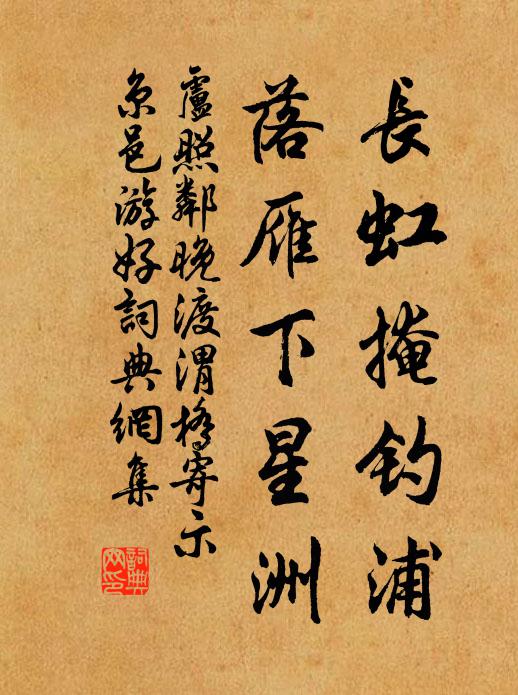 長虹掩釣浦
落雁下星洲
盧照鄰晚渡渭橋寄示
京邑游好詞典網集
詞典
网印